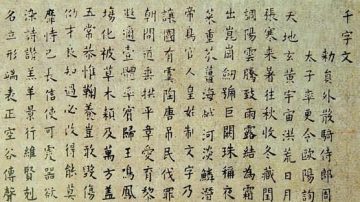 千字文
勅員外散騎侍郎周
太子率更令歐陽詢
天地玄黃宇宙洪荒日月
張寒來暑往秋收冬藏閏
調陽雲騰致雨露結為霜
出崑崗劍號巨闕珠稱夜
菜重芥薑海鹹河淡鱗潛
帝鳥官人皇始制文字乃
讓國有虞陶唐吊民伐罪
朝問道垂拱平章愛育黎
遐邇壹體率賓歸王鳴鳳
塲化被草木賴及萬方蓋
五常恭惟鞠養豈敢毀傷
才良知過必改得能莫
靡恃己長信使可覆器
染詩讚羔羊景行維賢剋
名立形端表正空谷傳聲